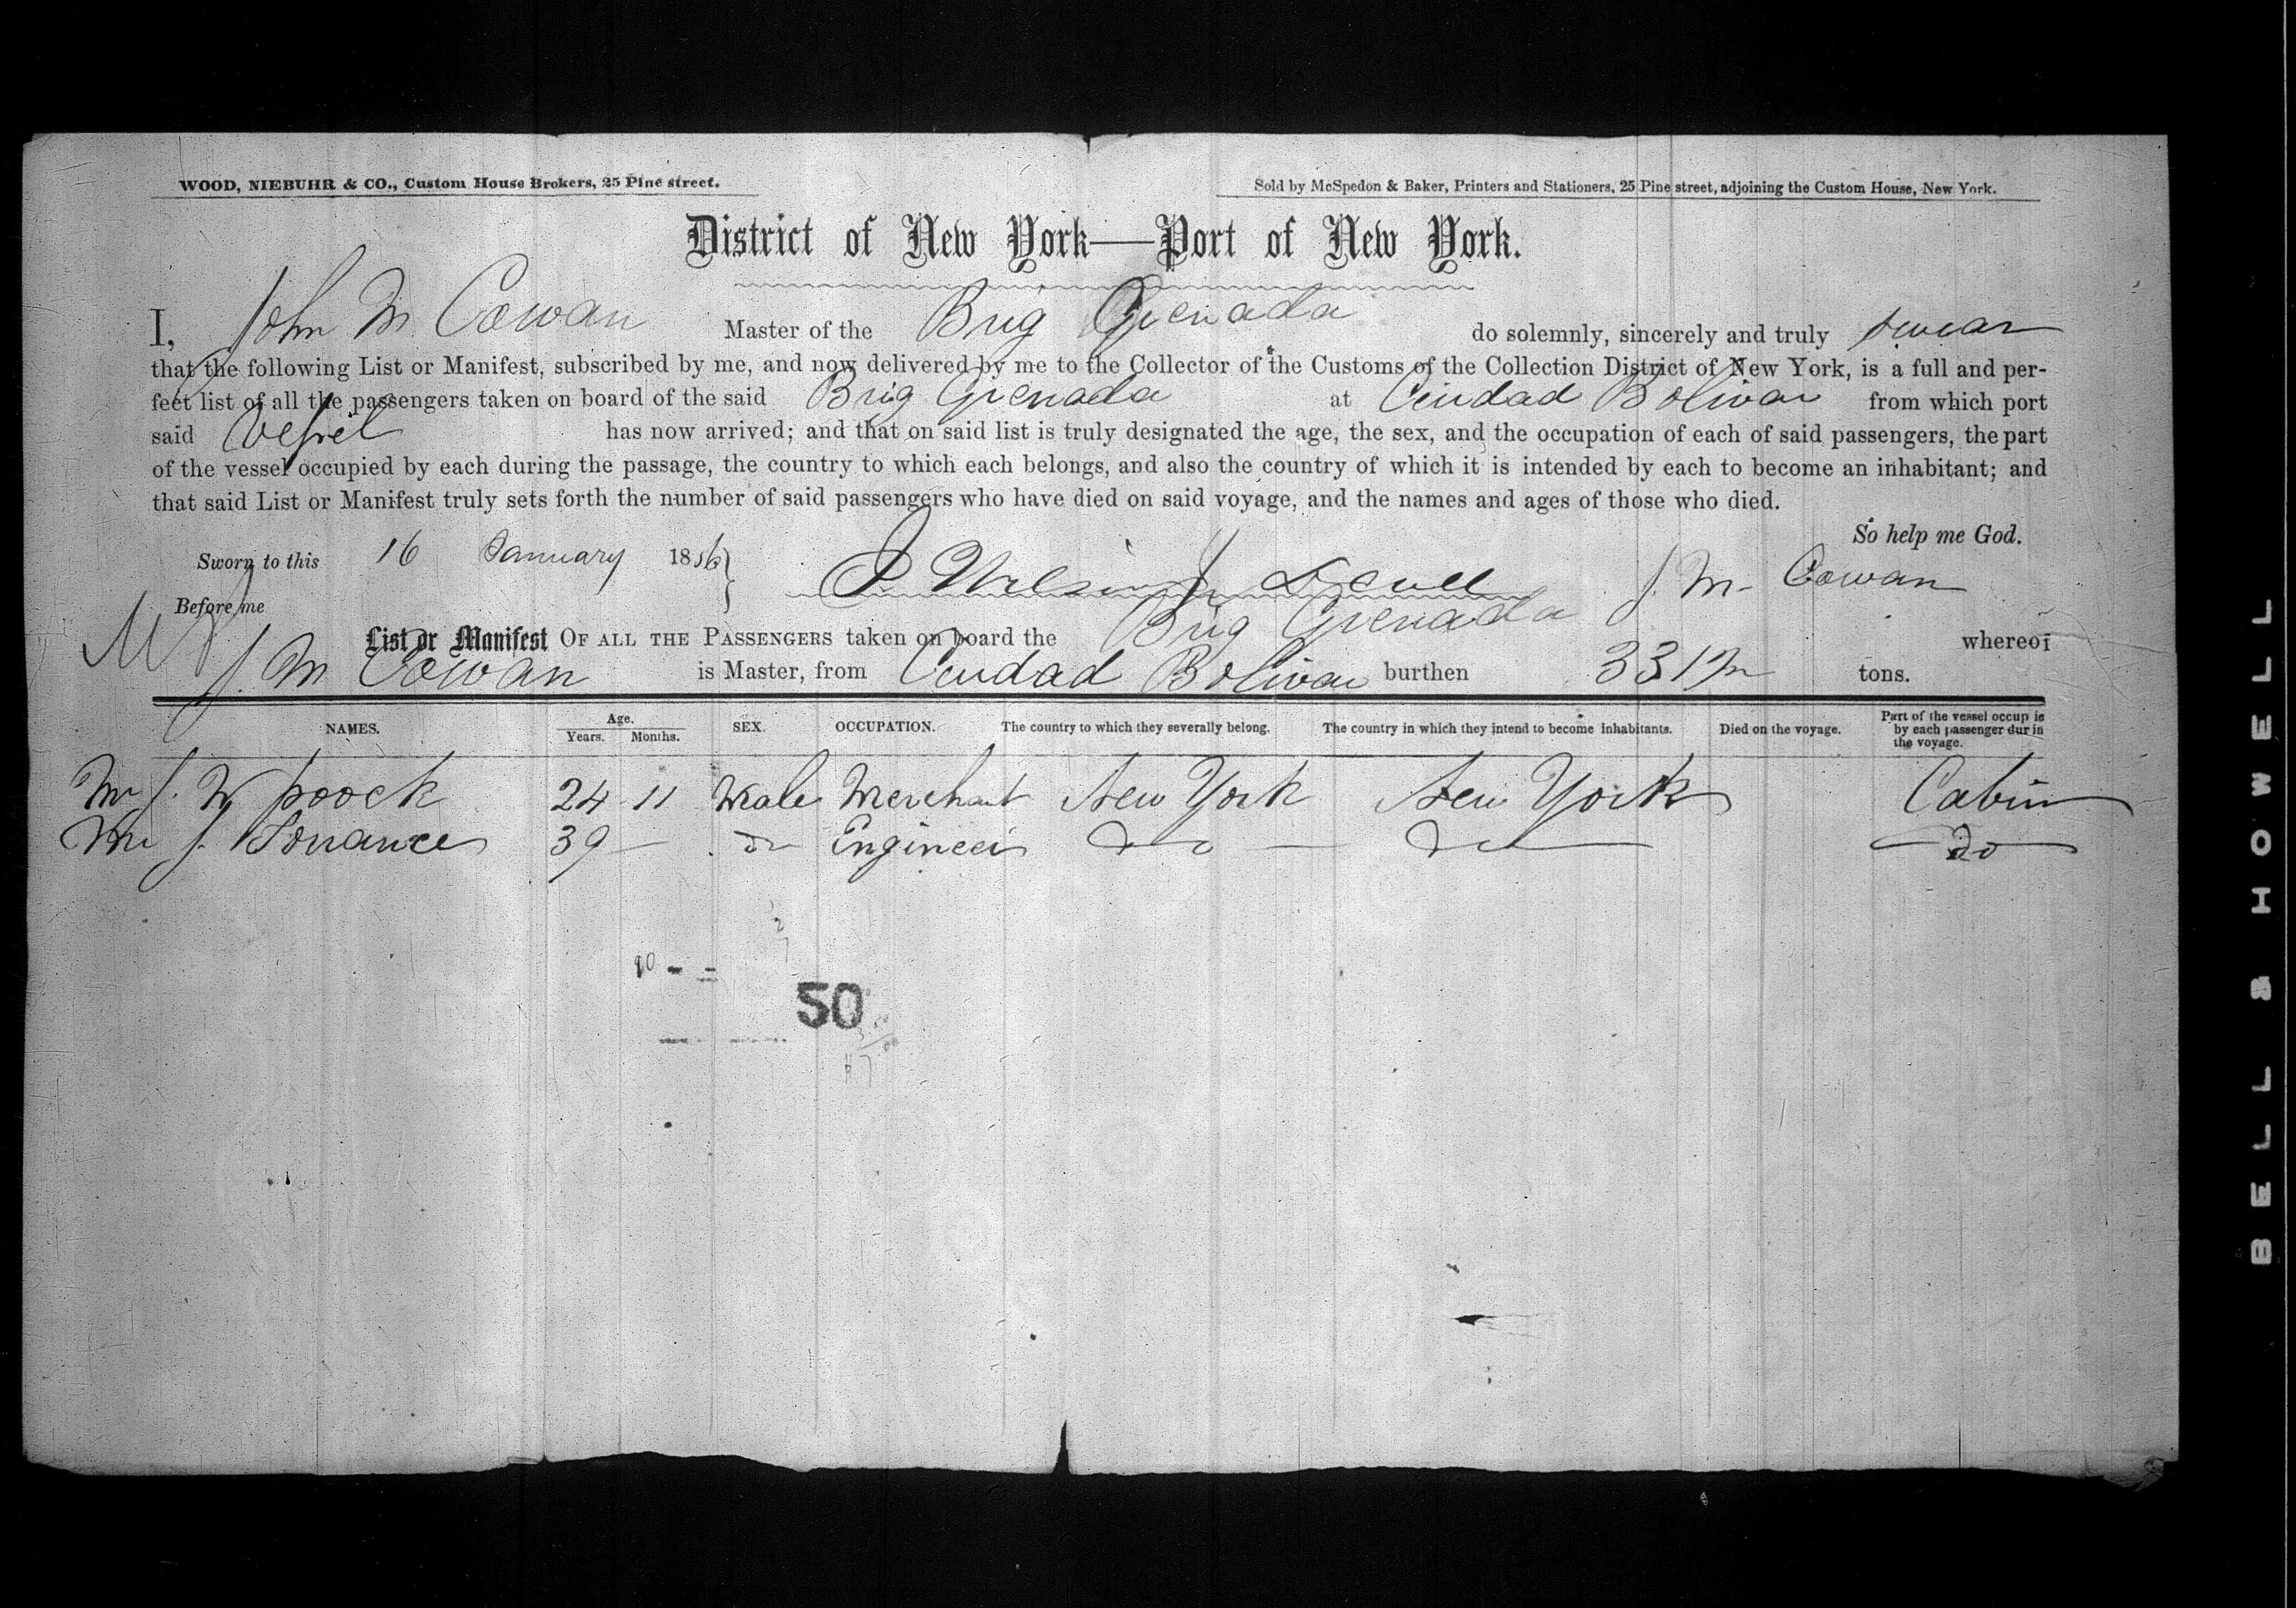 WOOD, NIEBUHR & CO., Custom House Brokers, 25 Pine street. Sold by McSpedon & Baker, Printers and Stationers, 25 Pine street, adjoining the Custom House, New York.
District of New York—Port of New York.
I, John M Cowan Master of the Brig Grenada do solemnly, sincerely and truly swear
that the following List or Manifest, subscribed by me, and now delivered by me to the Collector of the Customs of the Collection District of New York, is a full and per-
fect list of all the passengers taken on board of the said Brig Grenada at Ciudad Bolivar from which port
said Vessel has now arrived; and that on said list is truly designated the age, the sex, and the occupation of each of said passengers, the part
of the vessel occupied by each during the passage, the country to which each belongs, and also the country of which it is intended by each to become an inhabitant; and
that said List or Manifest truly sets forth the number of said passengers who have died on said voyage, and the names and ages of those who died.
So help me God.
Sworn to this 16 January 1856 J. M. Cowan
Before me
List or Manifest OF ALL THE PASSENGERS taken on board the Brig Grenada whereof
J. M Cowan is Master, from Ciudad Bolivar burthen tons.
NAMES. Age. Years. Months. SEX. OCCUPATION. The country to which they severally belong. The country in which they intend to become inhabitants. Died on the voyage. Part of the vessel occup ie by each passenger dur in the voyage.
Mr J. W Poock 24 11 Male Merchant New York New York Cabin
Mr J. 39 — do Engineer Do — Do — Do
50
BELL & HOWELL